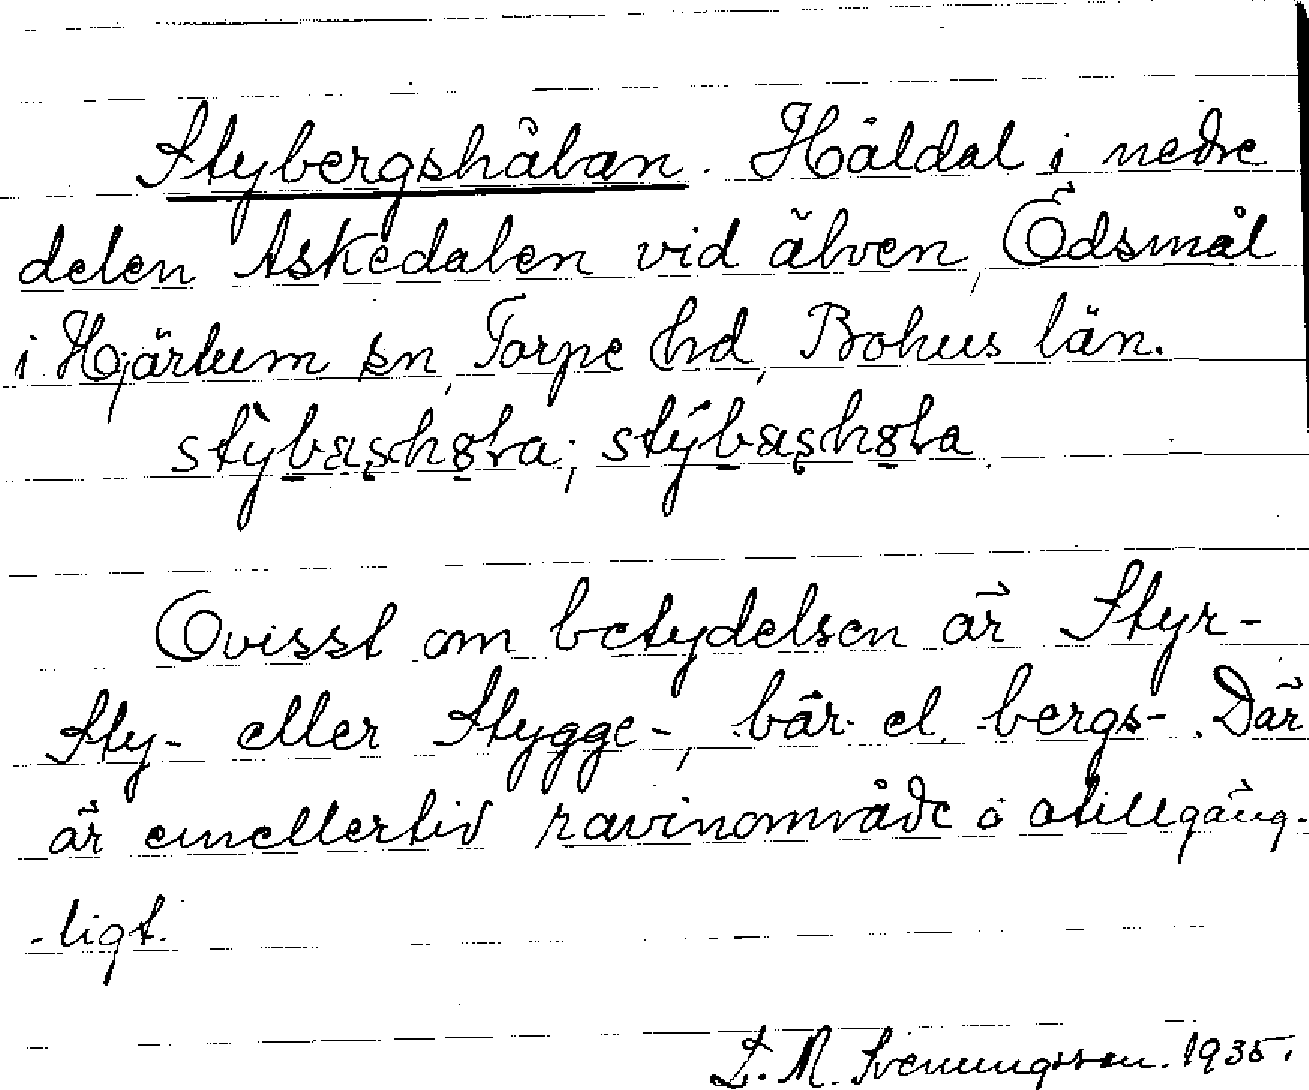 Stybergshålan. Håldal i nedre
delen Askedalen vid älven, Ödsmål
i Hjärtum sn, Torpe hd, Bohus län.
Ovisst om betydelsen är Styr-
Sty- eller Stygge-, bär- el. bergs-. Där
är emellertid ravinområde o otillgäng-
-ligt.
L. M. Svenungsson. 1935.